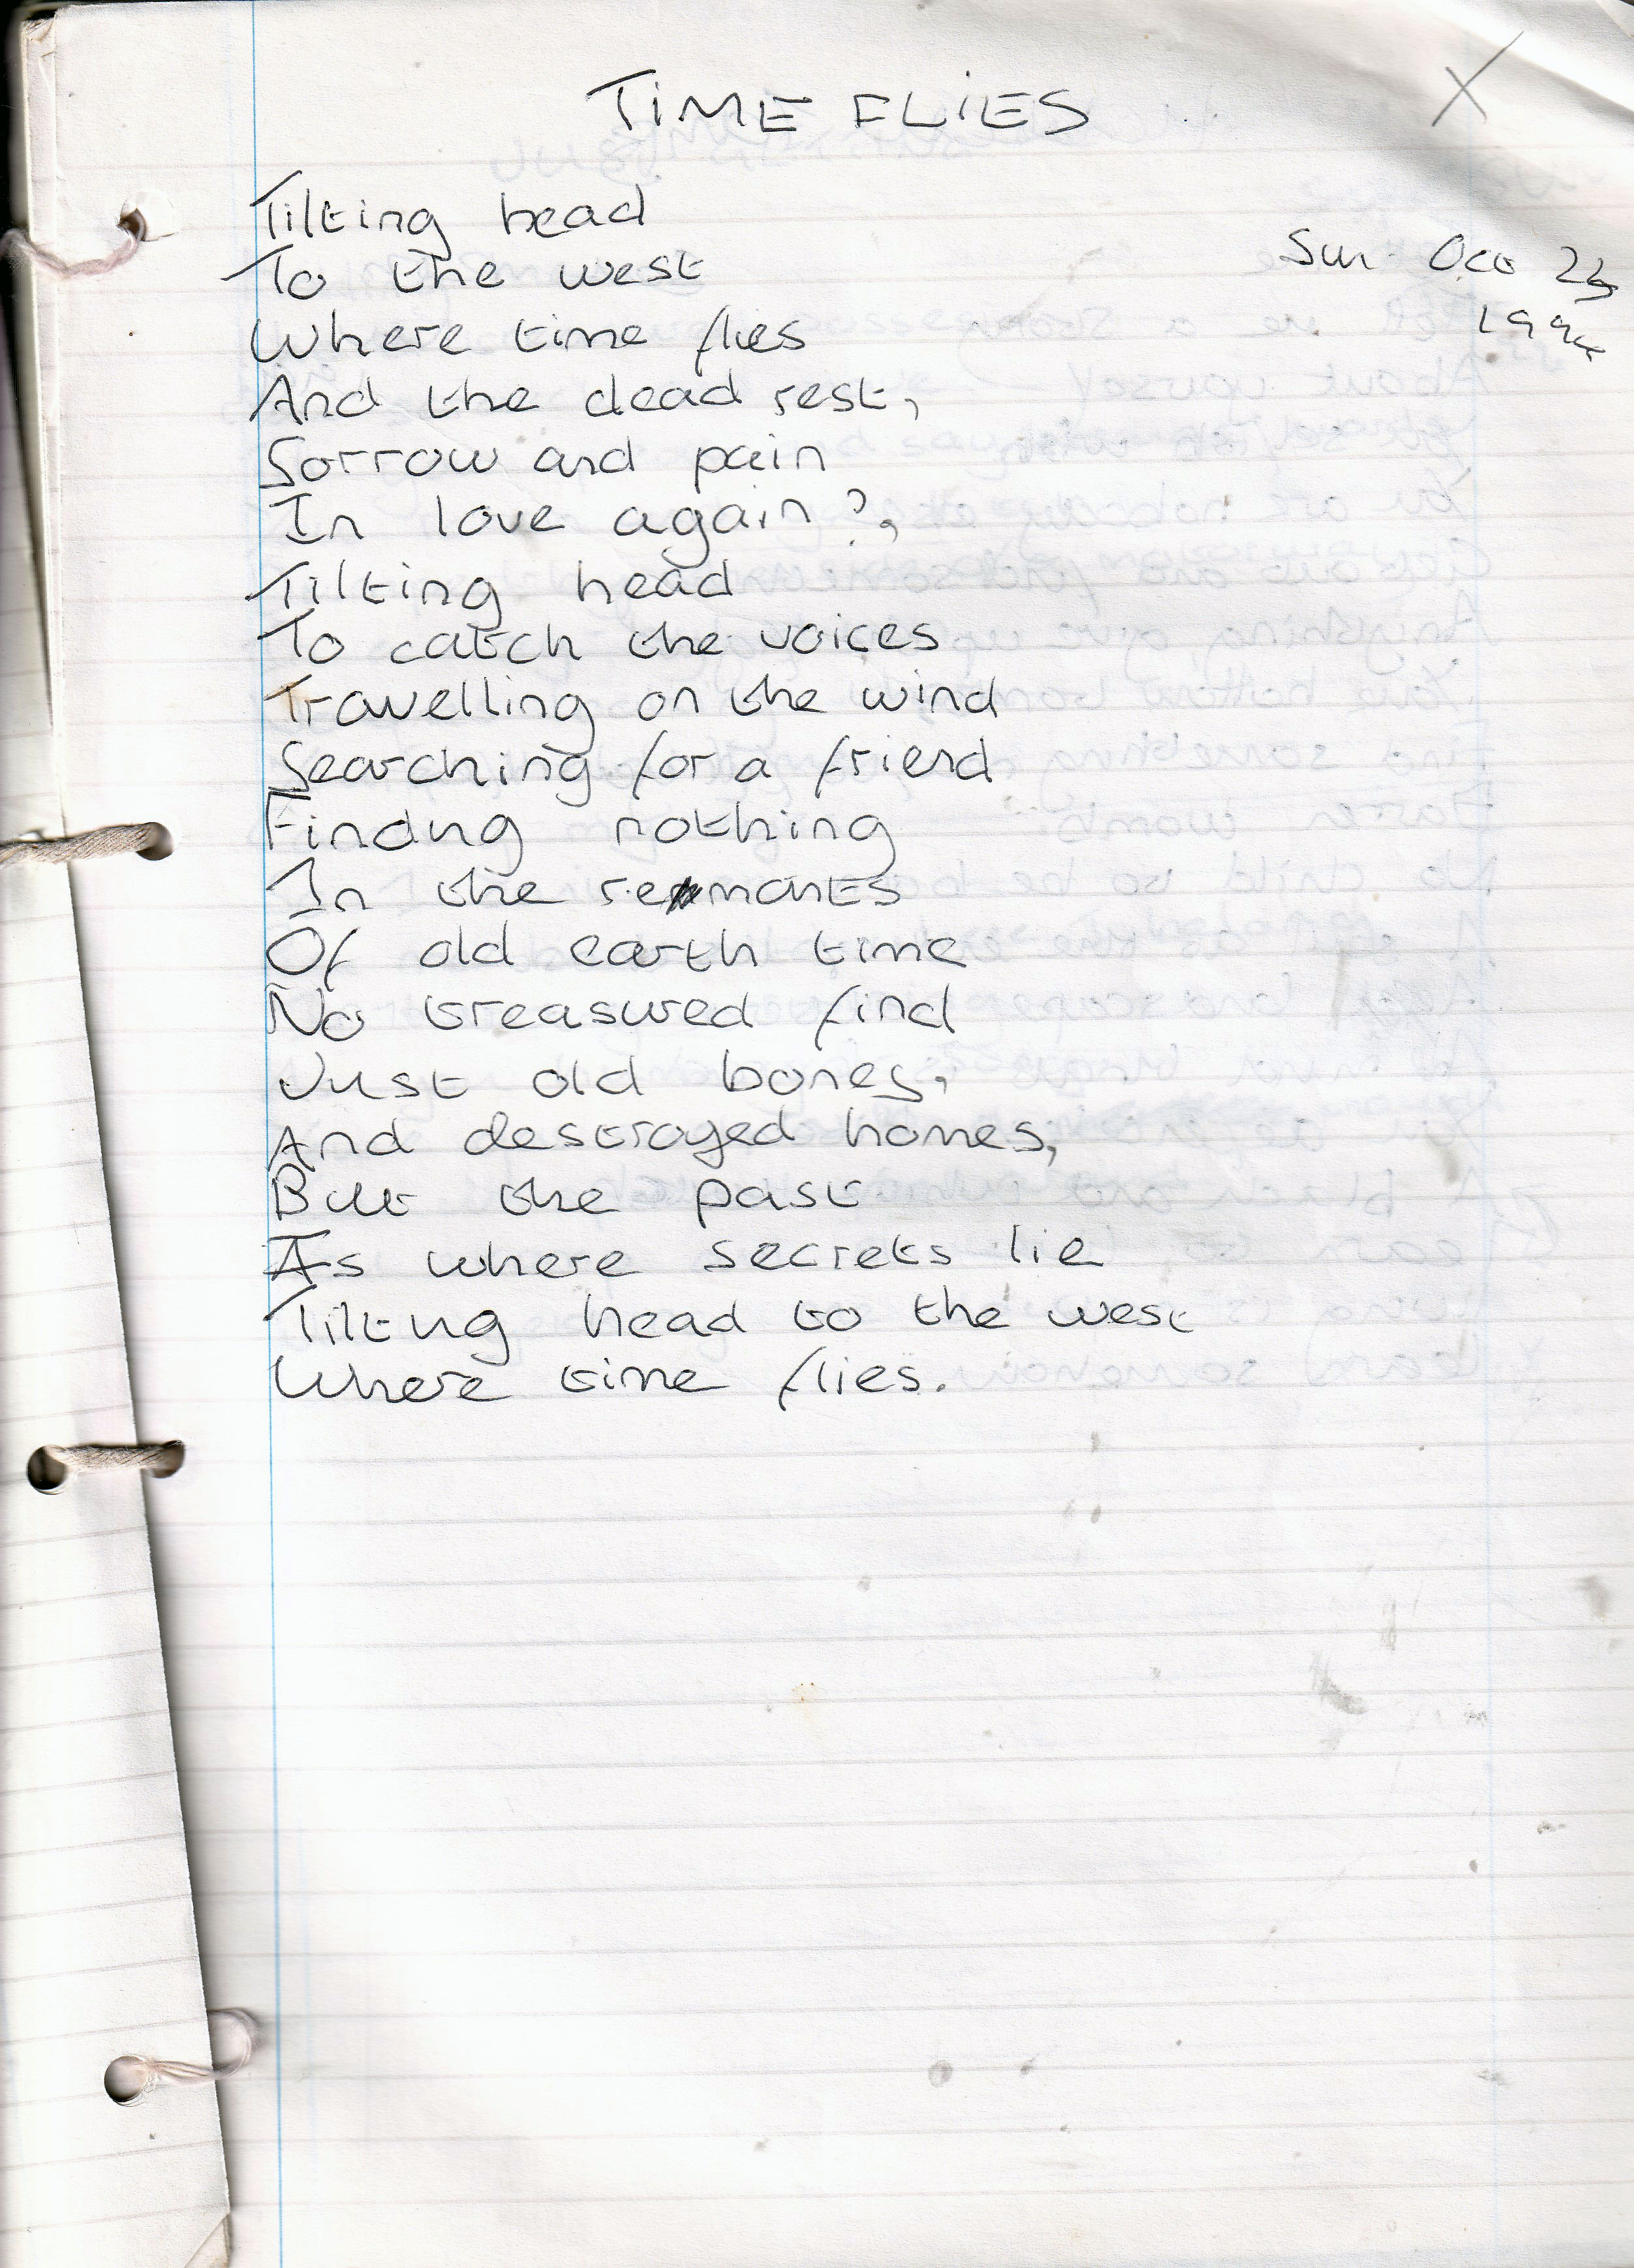 TIME FLIES
X
Tilting head
Sun Oct 23
1994
To the west
Where time flies
And the dead rest,
Sorrow and pain
In love again?,
Tilting head
To catch the voices
Travelling on the wind
Searching for a friend
Finding nothing
In the remnants
Of old earth time
No treasured find
Just old bones,
And destroyed homes,
But the past
Is where secrets lie
Tilting head to the west
Where time flies.